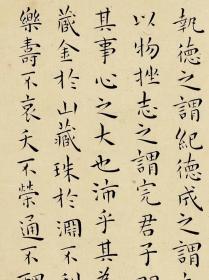 執德之謂紀德成之謂立
以物挫志之謂完君子明
其事心之大也沛乎其為
藏金於山藏珠於淵不利
樂壽不哀夭不榮通不醜